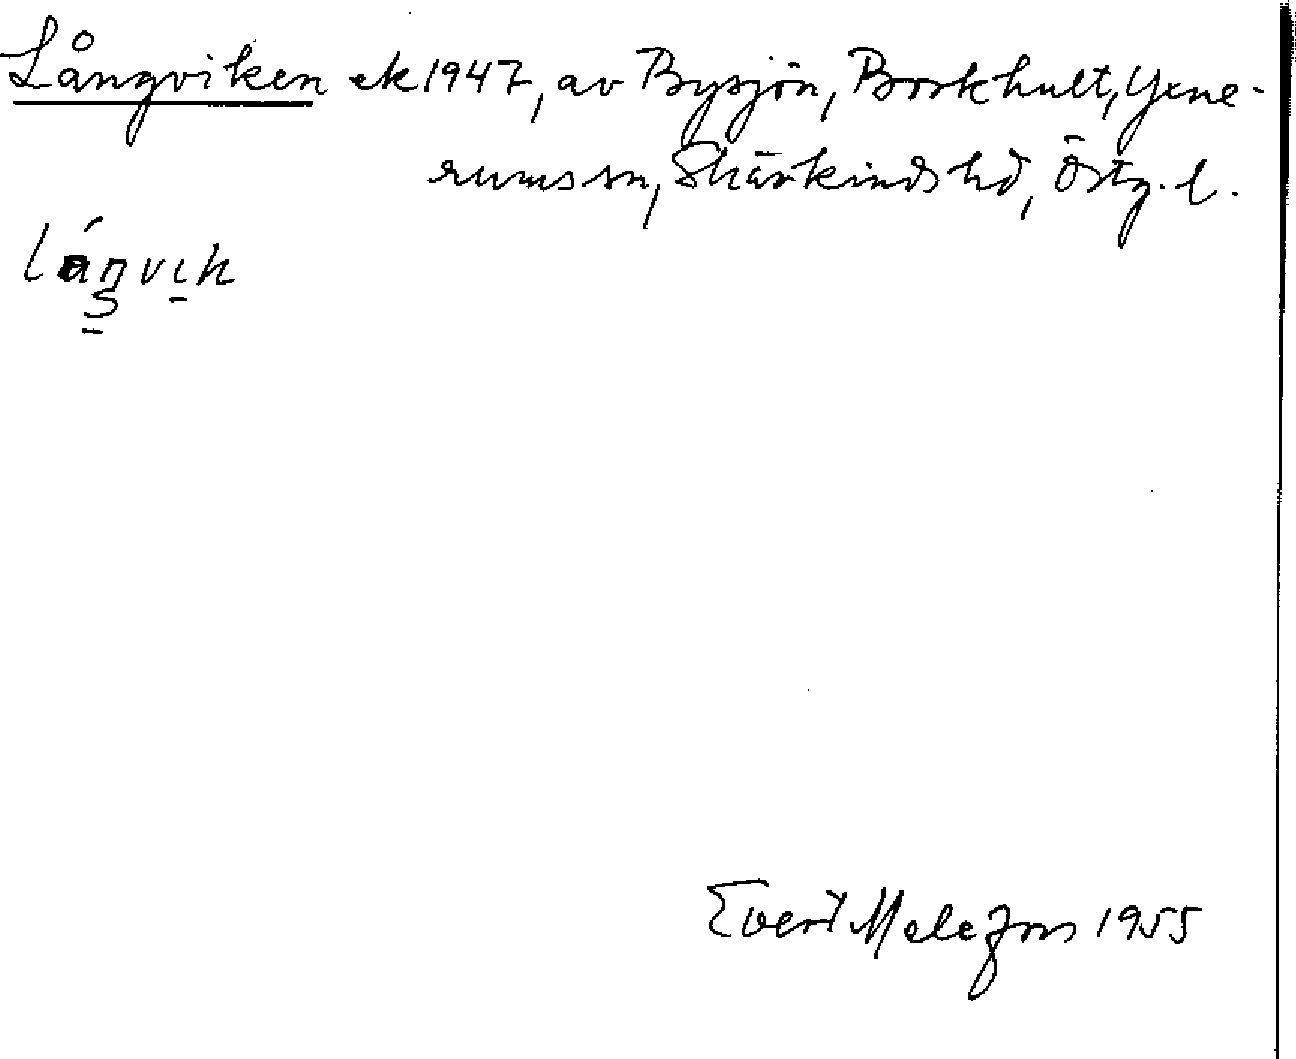 Långviken ek 1947, av Bysjön, Borkhult, Yxne-
rums sn, Skärkinds hd, Östg. l.
låŋvɩk
Evert Melefors 1955